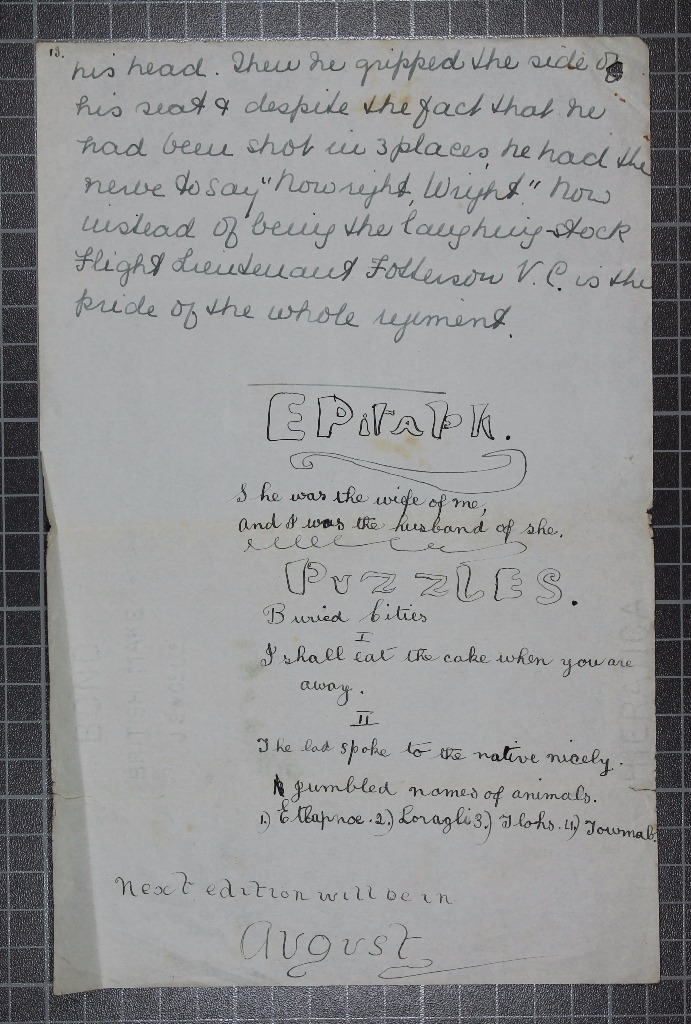 13.
his head. Then he gripped the side of
his seat & despite the fact that he
had been shot in 3 places, he had the
nerve to say "Now right, Wright." Now
instead of being the laughing-stock
Flight Lieutenant Fotterson V.C. is the
pride of the whole regiment.
EPitaph.
She was the wife of me,
and I was the husband of she.
PUZZLES.
Buried Cities
I
I shall eat the cake when you are
away.
II
The lad spoke to the native nicely.
Jumbled names of animals.
1.) Etlapnoe. 2.) Loragli 3.) Tlohs. 4.) Towmab.
Next edition will be in
August